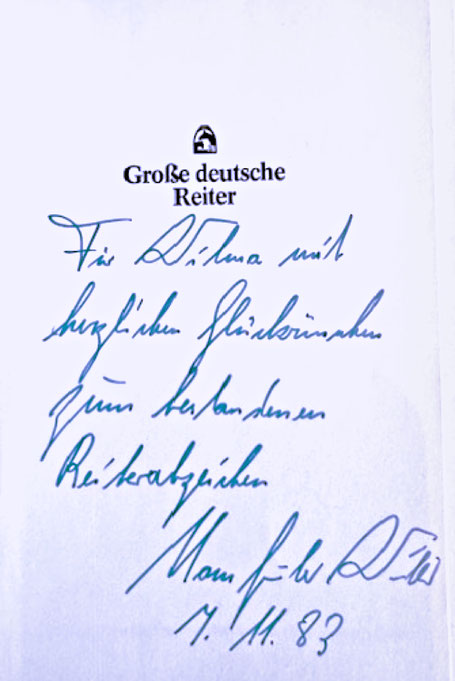 Große deutsche
Reiter
Für Wilma mit
herzlichen Glückwünschen
zum bestandenen
Reiterabzeichen
7. 11. 83